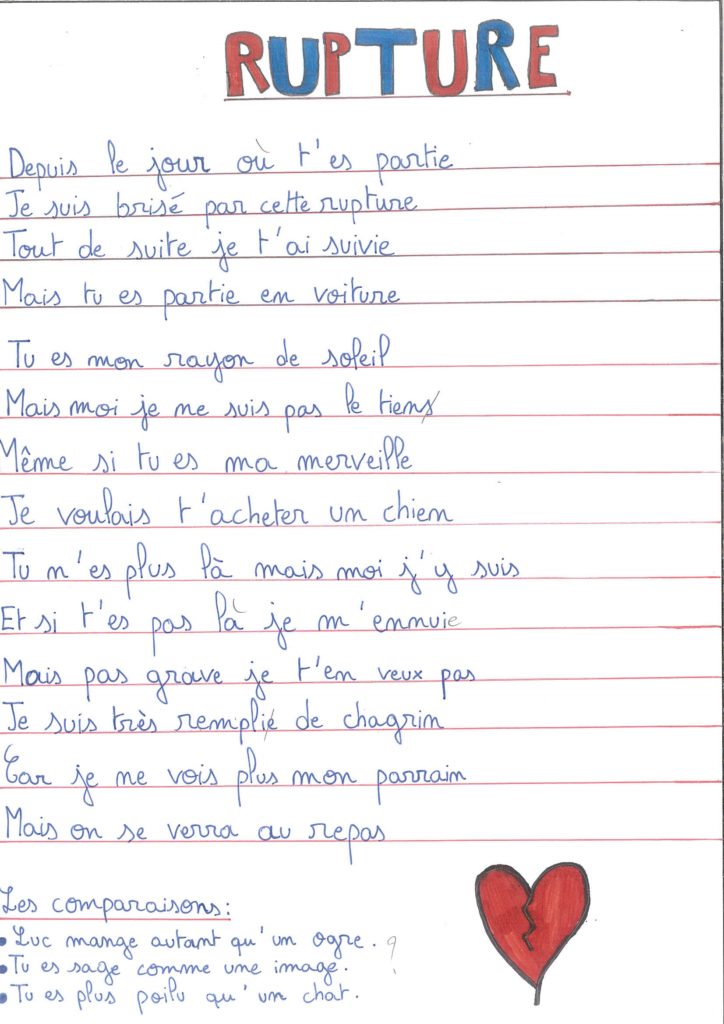 RUPTURE
Depuis le jour où t'es partie
Je suis brisé par cette rupture
Tout de suite je t'ai suivie
Mais tu es partie en voiture
Tu es mon rayon de soleil
Mais moi je ne suis pas le tiens
Même si tu es ma merveille
Je voulais t'acheter un chien
Tu n'es plus là mais moi j'y suis
Et si t'es pas là je m'ennuie
Mais pas grave je t'en veux pas
Je suis très remplié de chagrin
Car je ne vois plus mon parrain
Mais on se verra au repas
Les comparaisons:
• Luc mange autant qu'un ogre. ?
• Tu es sage comme une image.
• Tu es plus poilu qu'un chat.